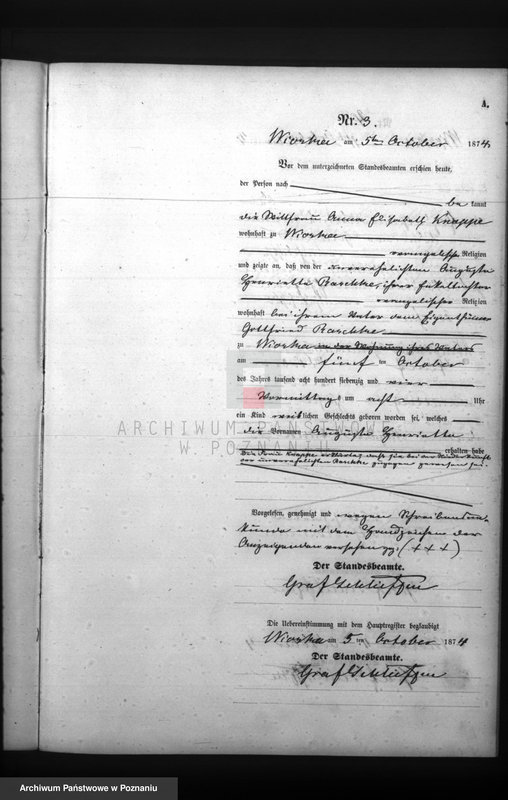 A.
Nr. 3.
Wioska am 5ten October 1874.
Vor dem unterzeichneten Standesbeamten erschien heute,
der Person nach
be kannt
die Wittfrau Anna Elisabeth Knappe
wohnhaft zu Wioska
evangelische Religion
und zeigte an, daß von der unverehelichten Auguste
Henriette Raschke, ihrer Enkeltochter
evangelischer Religion
wohnhaft bei ihrem Vater dem Eigenthümer
Gottfried Raschke
zu Wioska in der Wohnung ihres Vaters
am fünf ten October
des Jahres tausend acht hundert siebenzig und vier
Vormittag um acht Uhr
ein Kind weiblichen Geschlechts geboren worden sei, welches
die Vornamen Auguste Henriette
erhalten habe
Die Frau Knappe erklärte, daß sie bei der Niederkunft
der unverehelichten Raschke zugegen gewesen sei.
Vorgelesen, genehmigt und wegen Schreibensun-
kunde mit dem Handzeichen der
Anzeigenden versehen (+++)
Der Standesbeamte.
Graf Schlieffen
Die Uebereinstimmung mit dem Hauptregister beglaubigt
Wioska am 5. ten October 1874
Der Standesbeamte.
Graf Schlieffen
ARCHIWUM PAŃSTWOWE
W POZNANIU
Archiwum Państwowe w Poznaniu